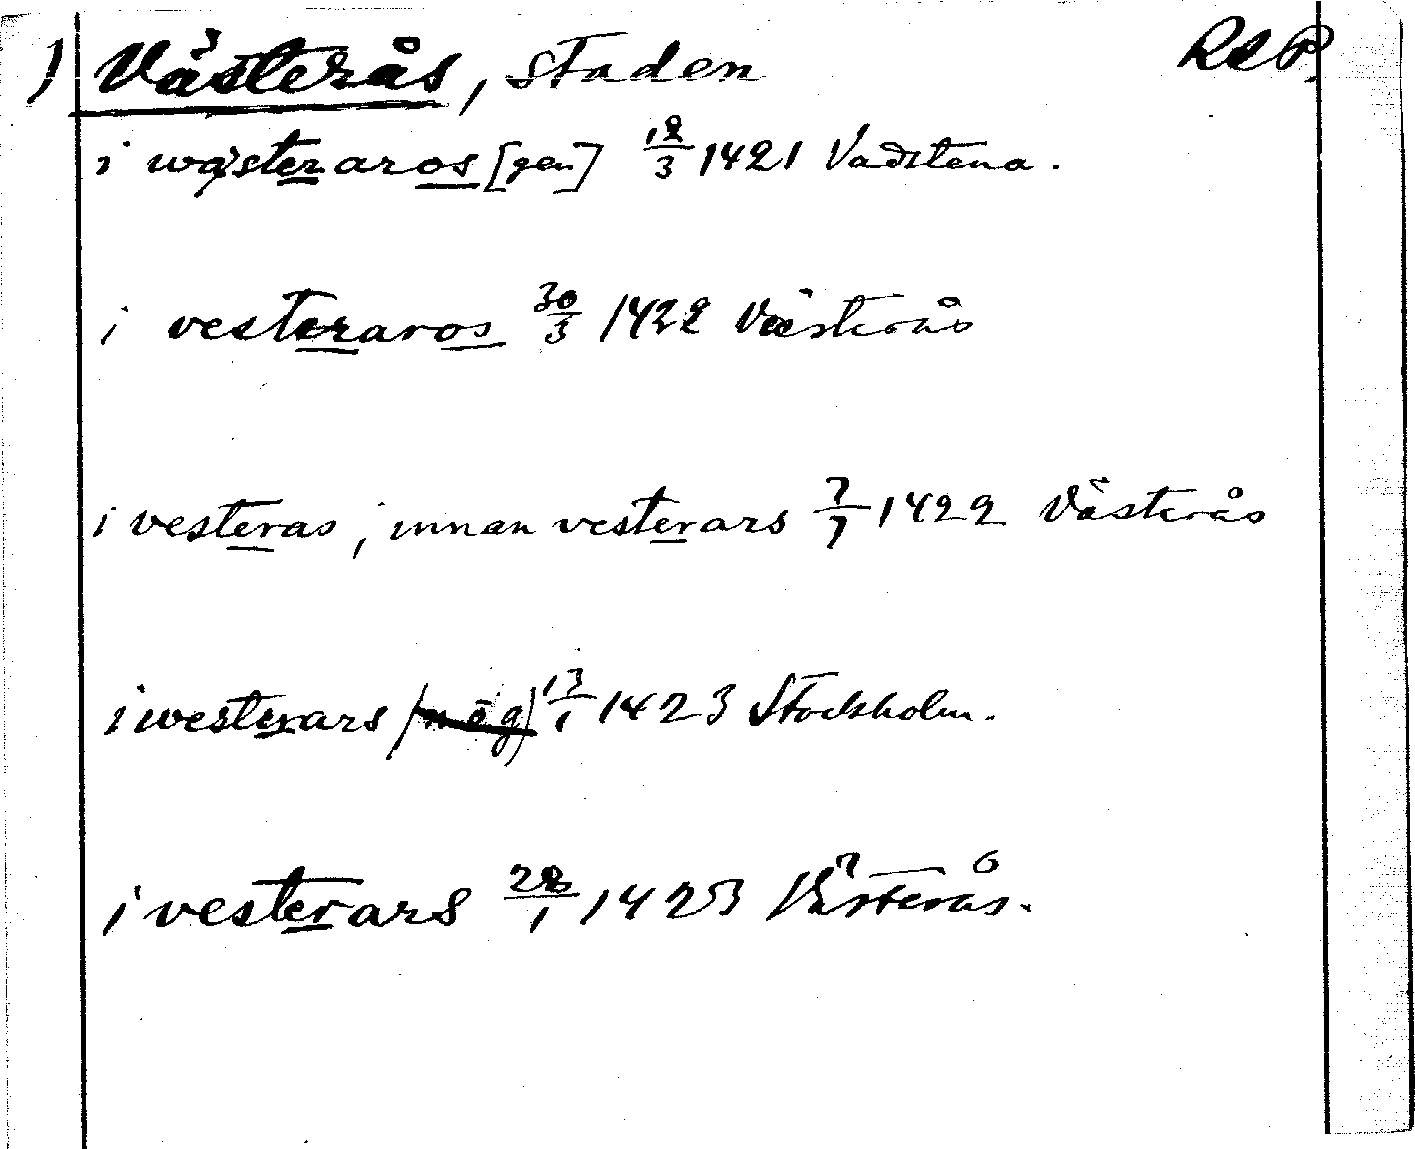 ) Västerås, staden RSP.
i wæsteraros [gen] 18/3 1421 Vadstena.
i vesteraros 30/3 1422 Västerås
i vesteras, innan vesterars 7/7 1422 Västerås
i westerars 13/1 1423 Stockholm.
i vesterars 28/1 1423 Västerås.